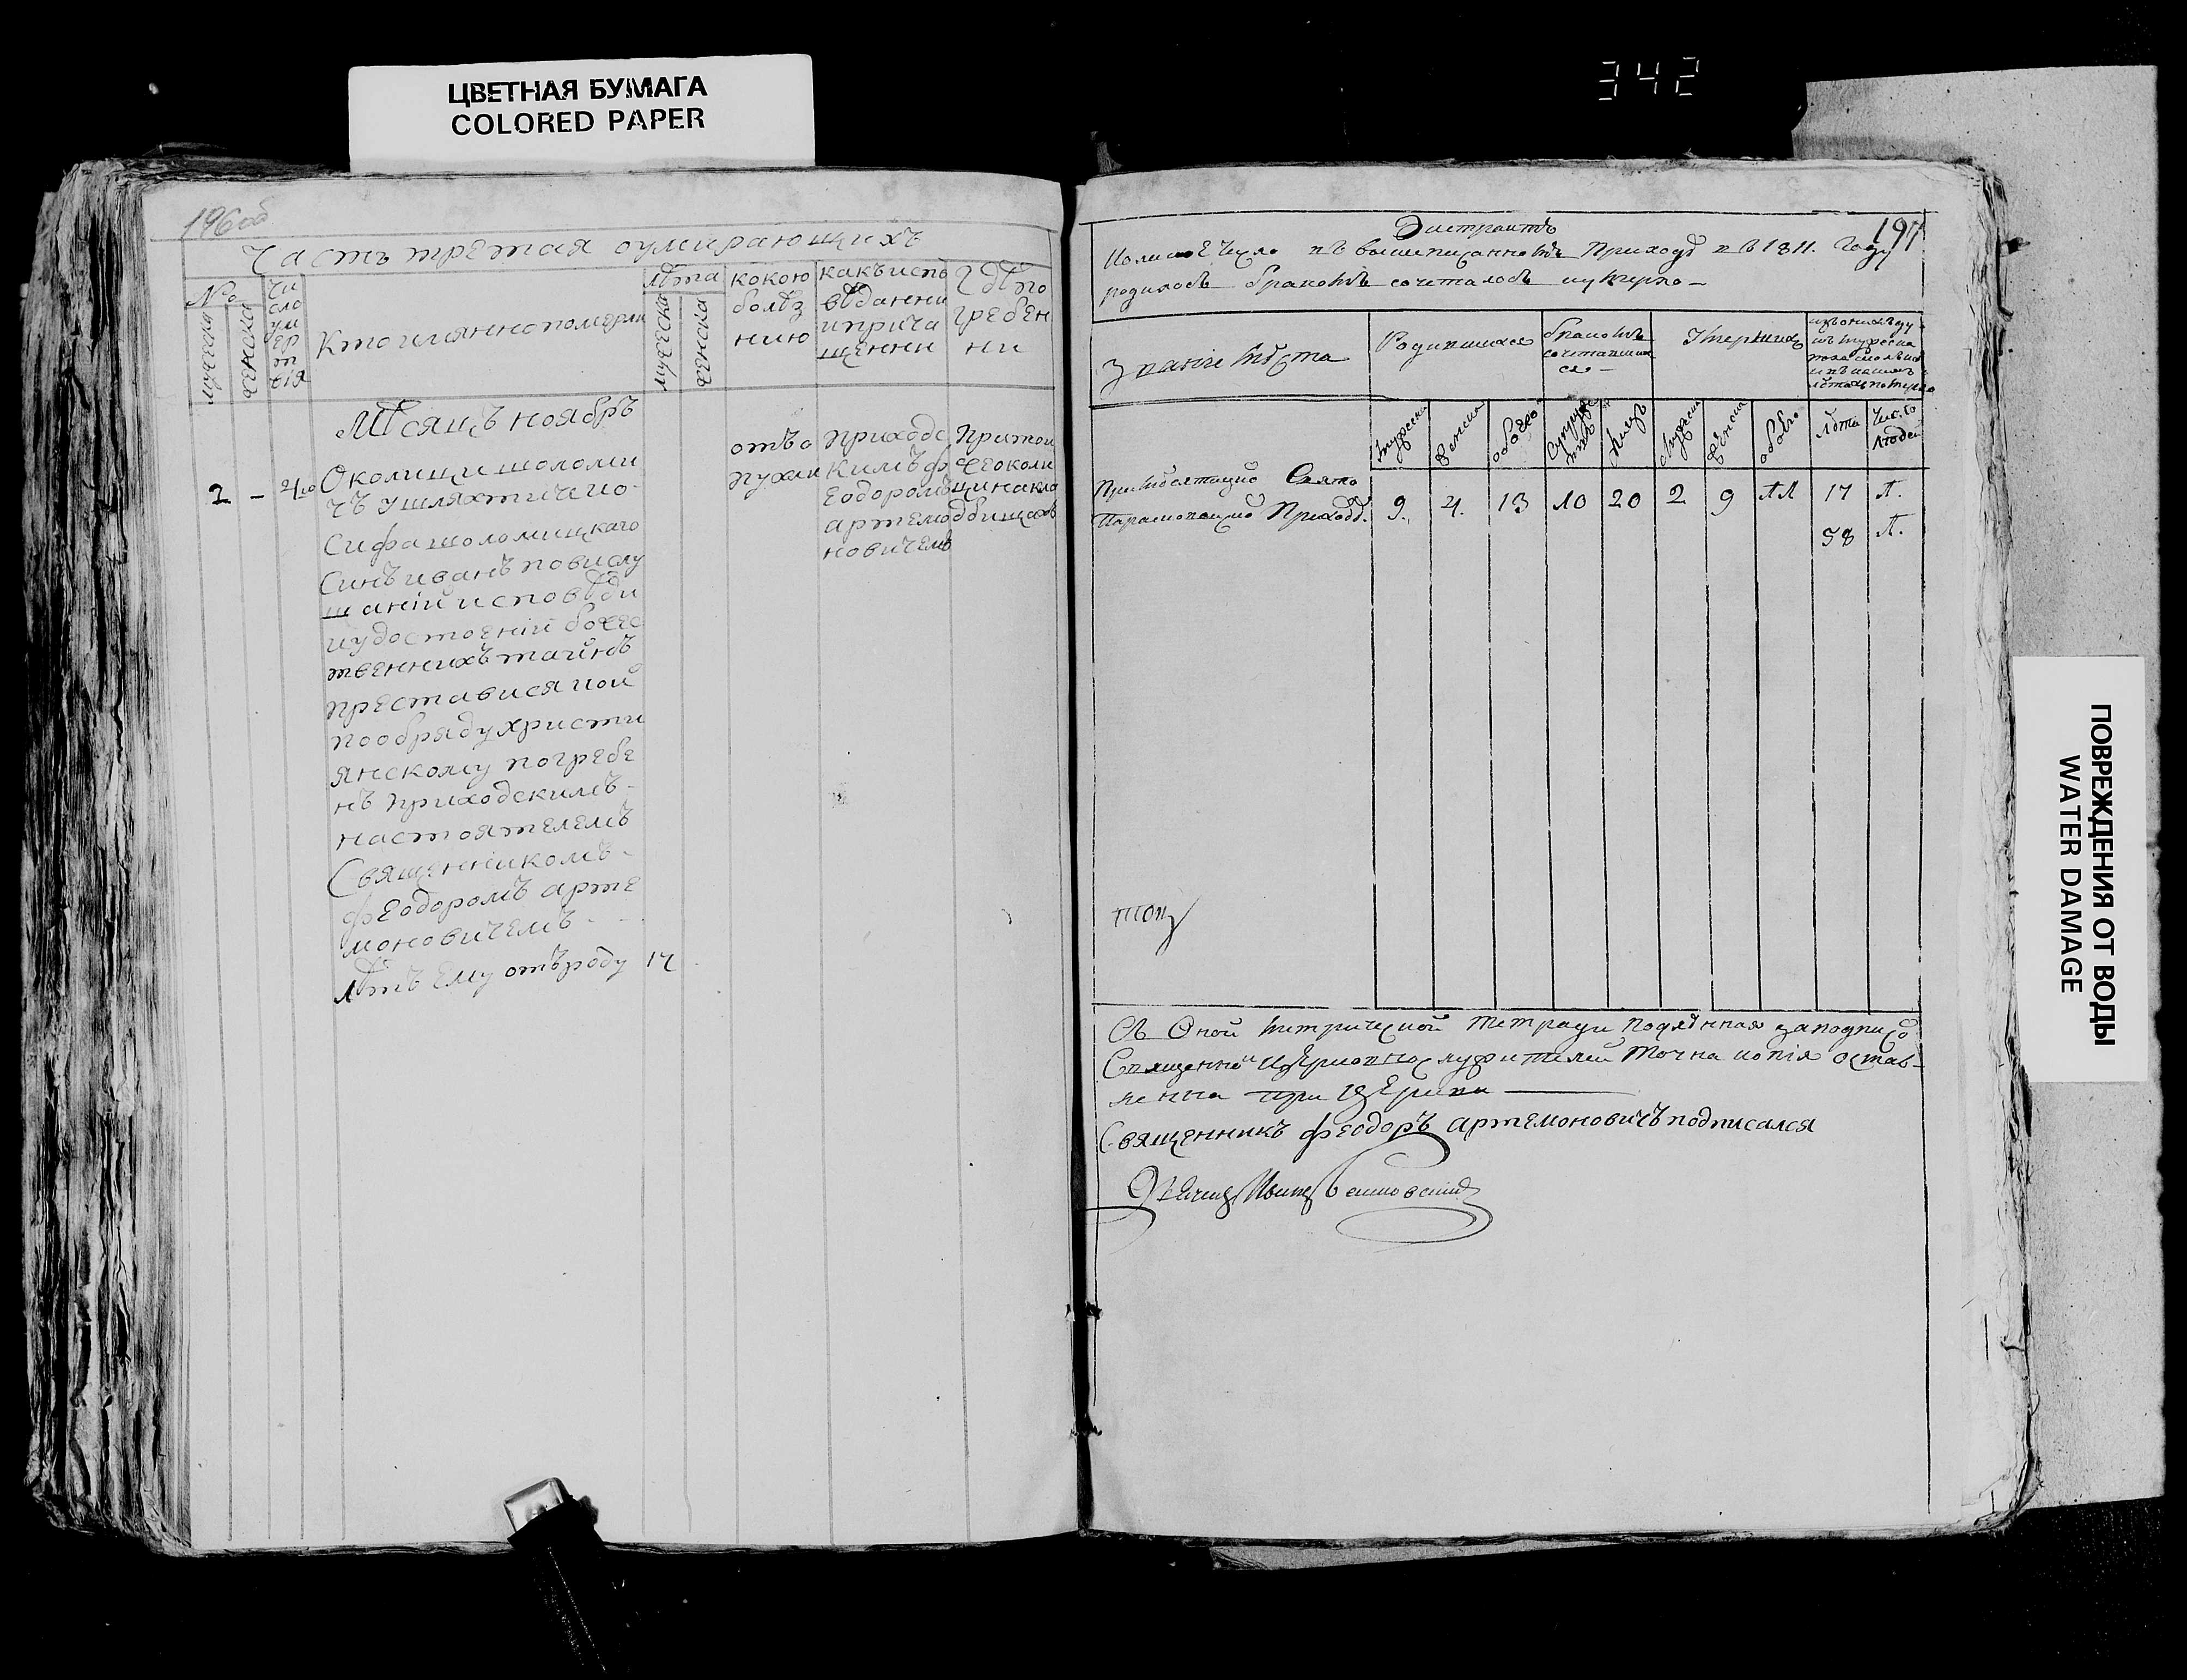 ЦВЕТНАЯ БУМАГА
COLORED PAPER
342
196об
Часть третая оумирающихъ
№
мужеска
женска
чи
сло
ум
ер
т
вія
Кто имянно померли
лѣта
мужеска
женска
кокою
болѣз
нию
какъ испо
вѣданни
и прича
щенни
гдѣ по
гребен
ни
Мѣсяцъ ноябрь
2 -
Околици шоломи
чъ у шляхтича ио
сифа шоломицкаго
Синъ иванъ по вислу
шаніи исповѣди
и удостоеній божес
твеннихъ тайнъ
преставися кой
по обряду христи
янскому погребе
нъ приходскимъ
настоятелемъ
Священникомъ
феодоромъ арте
моновичемъ
лѣтъ ему отъ роду 17
отъ о
пухли
приходс
кимъ ф
еодоромъ
артемо
новичемъ
При той
же околи
ци на кла
дбищахъ
197
Экстрактъ
Коликое число въ вышеписанномъ Приходѣ въ 1811. Году
родилось браковъ сочеталось и умерло -
Званіе мѣста
Родившихся
браковъ
сочетавших
ся
Умершихъ
Мужеска
Женска
обоего
Супруже
Лицъ
Мужеска
Женска
обоего
Лѣта
Число
людей
Свято
Приходѣ.
9. 4. 13 10 20 2 9 11 17 1.
58 1.
Съ Оной Метрической тетради подлѣнная за подписо
Священно Церковнослужителей точна копія остав-
ленна при Церкви
Священникъ феодоръ артемоновичъ подписался
ПОВРЕЖДЕНИЯ ОТ ВОДЫ
WATER DAMAGE